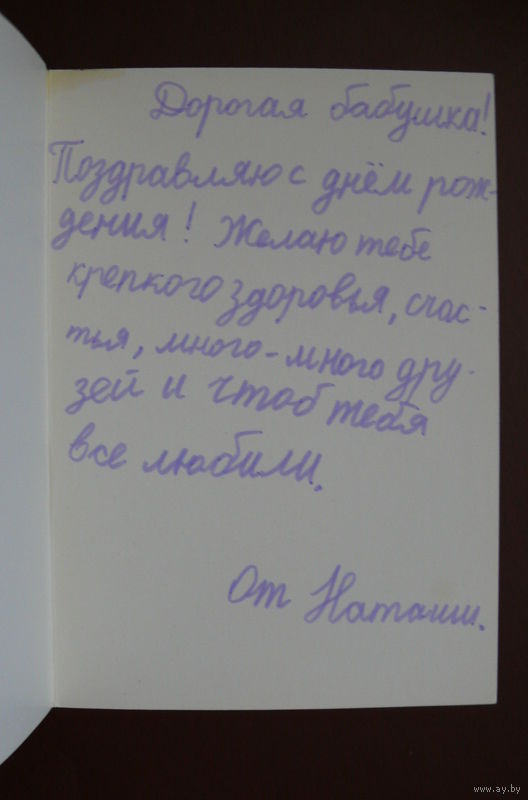 Дорогая бабушка!
Поздравляю с днём рож-
дения! Желаю тебе
крепкого здоровья, счас-
тья, много-много дру-
зей и чтоб тебя
все любили.
От Наташи.
www.ay.by